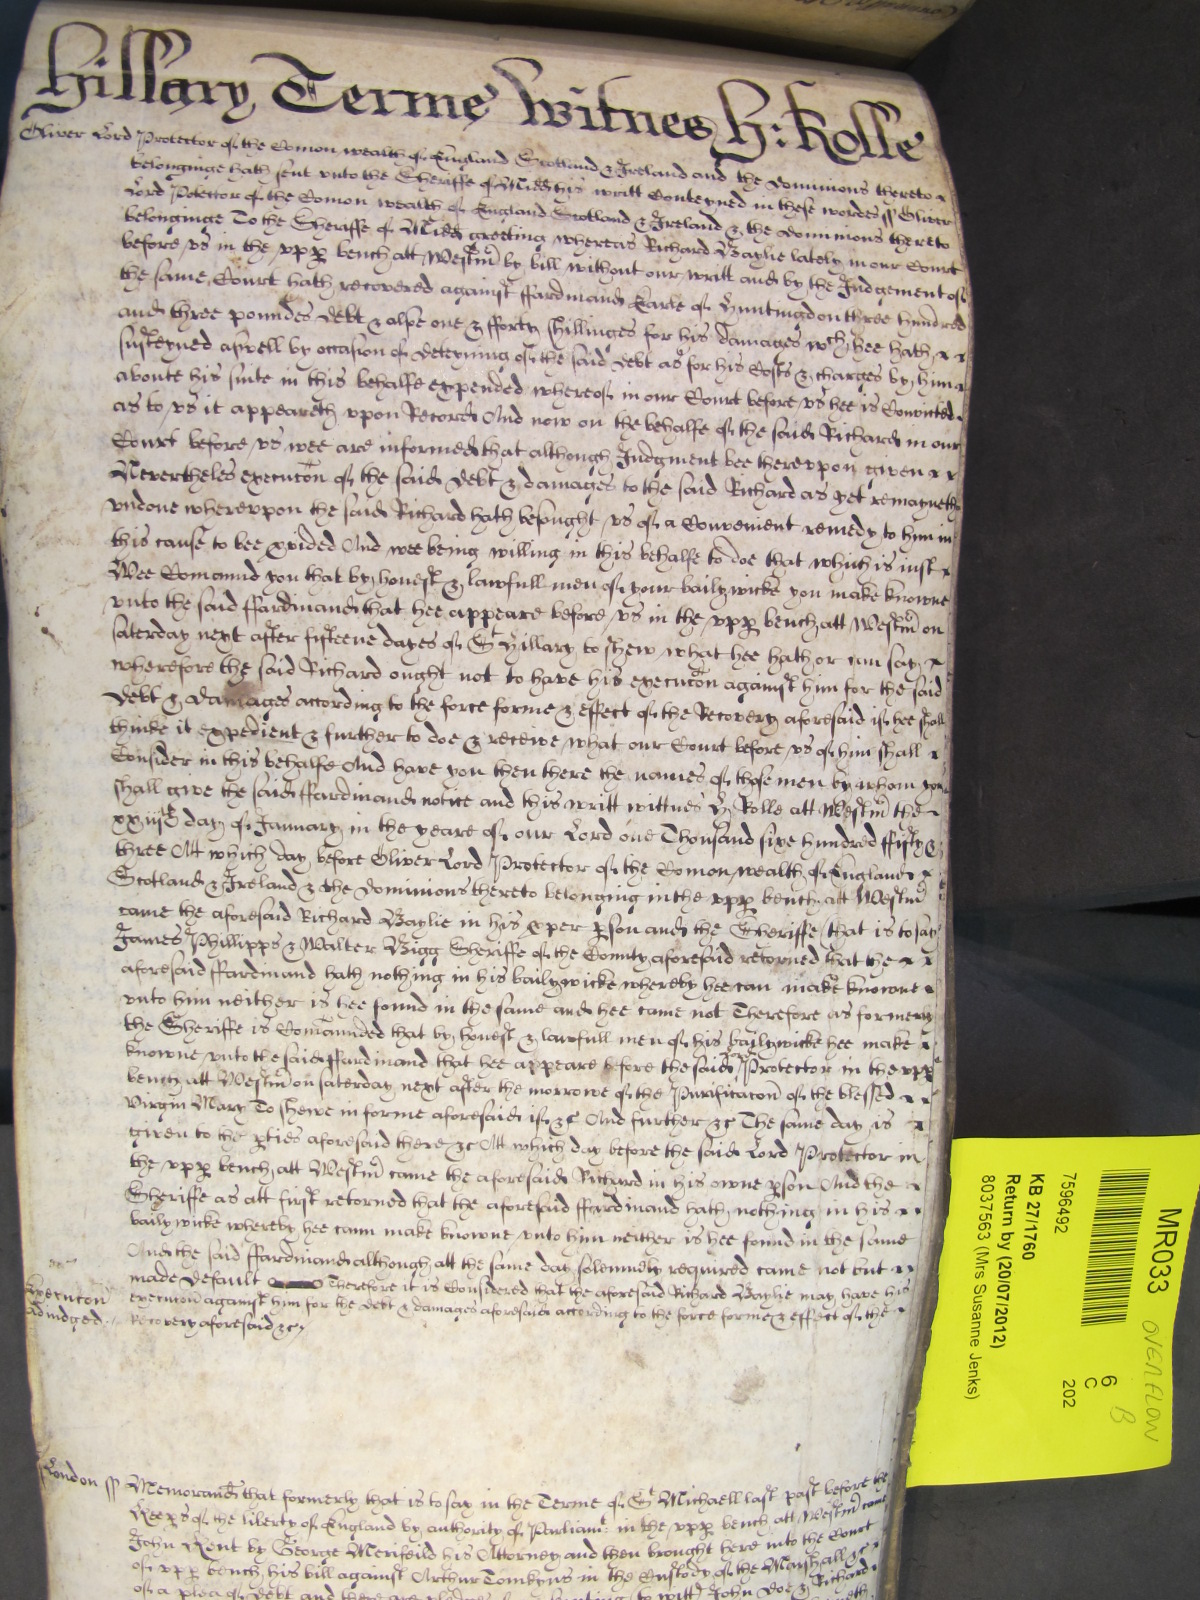 Hillary Terme Witnes H: Rolle
Oliver Lord Protector of the Comon wealth of England Scotland & Ireland and the Dominions thereto
belonginge hath sent vnto the Sheriffe of Midd his writt Conteyned in these wordes ss Oliver
Lord Protector of the Comon wealth of England Scotland & Ireland & the Dominions thereto
belonginge To the Sheriffe of Midd greeting whereas Richard Baylie lately in our Court
before vs in the vpp bench att Westm by bill without our writt and by the Judgement of
the same Court hath recovered against ffardinand Earle of Huntingdon three hundred
and three poundes debt & alsoe one & fforty shillinges for his damages wch hee hath
susteyned aswell by occasion of deteyning of the said debt as for his Costs & charges by him
aboute his suite in this behalfe expended whereof in our Court before vs hee is Convicted
as to vs it appeareth vpon Record And now on the behalfe of the said Richard in our
Court before vs wee are informed that although Judgment bee therevpon given
Nevertheles execucon of the said debt & damages to the said Richard as yet remayneth
vndone wherevpon the said Richard hath besought vs of a Convenient remedy to him in
this cause to bee pvided And wee being willing in this behalfe to doe that which is iust
Wee Comannd you that by honest & lawfull men of your bailywicke you make knowne
vnto the said ffardinand that hee appeare before vs in the vpp bench att Westm on
saterday next after fifteene dayes of St Hillary to shew what hee hath or can say
wherefore the said Richard ought not to have his execucon against him for the said
debt & damages according to the force forme & effect of the Recovery aforesaid if hee shall
thinke it expedient & further to doe & receive what our Court before vs of him shall
Consider in this behalfe And have you then there the names of those men by whom you
shall give the said ffardinand notice and this writt wittnes H Rolle att Westm the
xxiijth day of January in the yeare of our Lord one Thousand sixe hundred ffifty &
three Att which day before Oliver Lord Protector of the Comon wealth of England
Scotland & Ireland & the Dominions thereto belonging in the vpp bench att Westm
came the aforesaid Richard Baylie in his pper pson and the Sheriffe that is to say
James Phillipps & Walter Bigg Sheriffe of the County aforesaid retorned that the
aforesaid ffardinand hath nothing in his bailywicke whereby hee can make knowne
vnto him neither is hee found in the same and hee came not Therefore as formerly
the Sheriffe is Comannded that by honest & lawfull men of his bailywicke hee make
knowne vnto the said ffardinand that hee appeare before the said Lord Protector in the vpp
bench att Westm on saterday next after the morrowe of the Purificacon of the blessed
Virgin Mary To shewe in forme aforesaid if &c And further &c The same day is
given to the pties aforesaid there &c Att which day before the said Lord Protector in
the vpp bench att Westm came the aforesaid Richard in his owne pson And the
Sheriffe as att first retorned that the aforesaid ffardinand hath nothing in his
bailywicke whereby hee cann make knowne vnto him neither is hee found in the same
And the said ffardinand although att the same day solemnely required came not but
made default Therefore it is Considered that the aforesaid Richard Baylie may have his
Execucon
execucon against him for the debt & damages aforesaid according to the force forme & effect of the
Adiudged
Recovery aforesaid &c
London ss Memorand that formerly that is to say in the Terme of St Michaell last past before the
Keeps of the liberty of England by authority of Parliamt in the vpp bench att Westm came
John Kent by George Merifeild his Attorney and then brought here into the Court
of vpp bench his bill against Arthur Tomkyns in the Custody of the Marshall &c
of a plea of debt and there are pledges to witt John Doe & Richard
MR033 OVERFLOW
6 B
C
202
7596492
KB 27/1760
Return by (20/07/2012)
8037563 (Mrs Susanne Jenks)